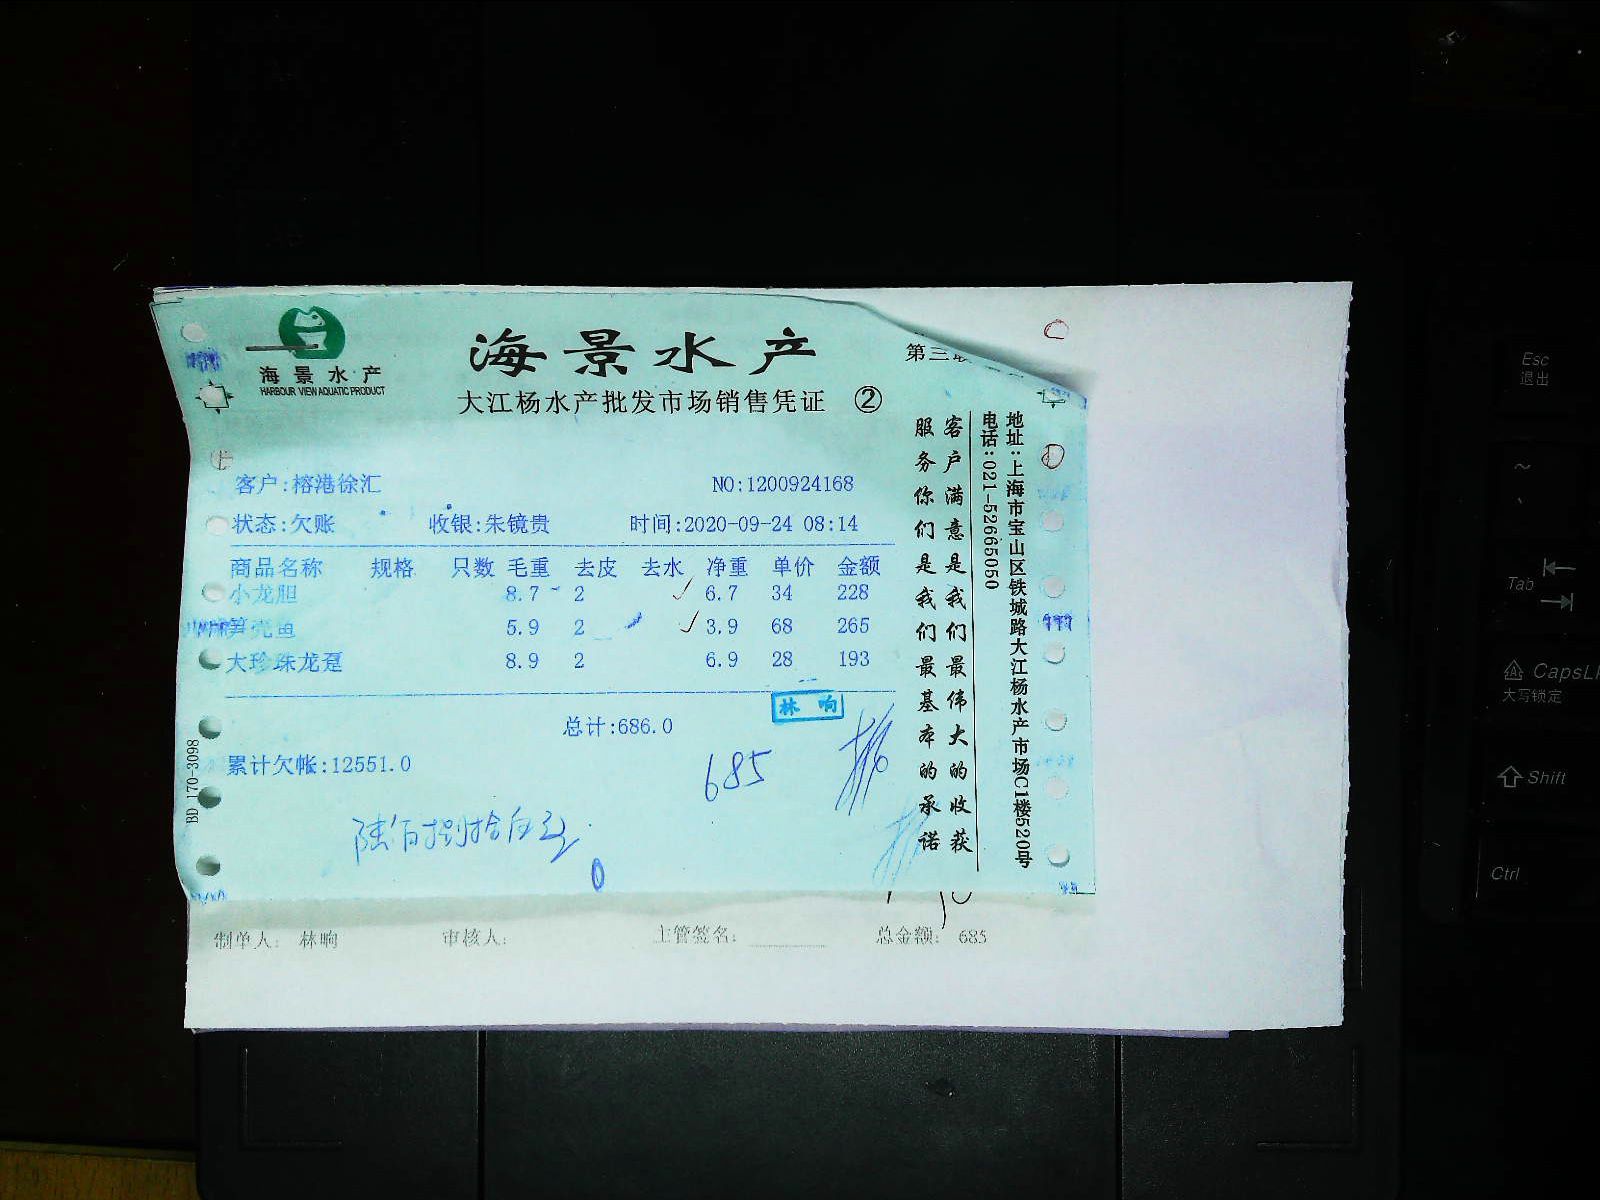 海景水产
HARBOUR VIEW AQUATIC PRODUCT
海景水产
第三联
大江杨水产批发市场销售凭证 ②
客户:榕港徐汇 NO:1200924168
状态:欠账 收银:朱镜贵 时间:2020-09-24 08:14
商品名称 规格 只数 毛重 去皮 去水 净重 单价 金额
小龙胆 8.7 2 6.7 34 228
笋壳鱼 5.9 2 3.9 68 265
大珍珠龙趸 8.9 2 6.9 28 193
林响
总计:686.0
累计欠帐:12551.0
685
陆佰捌拾伍元
BD 170-3098
客户满意是我们最伟大的收获
服务你们是我们最基本的承诺
地址:上海市宝山区铁城路大江杨水产市场C1楼520号
电话:021-52665050
制单人: 林响 审核人: 主管签名: 总金额: 685
Esc
退出
~
Tab
CapsL
大写锁定
Shift
Ctrl